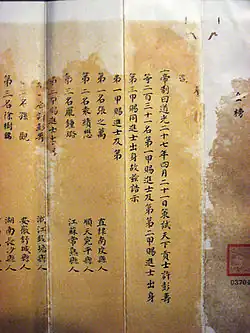 榜
帝制曰道光二十七年四月二十一日策試天下貢士許彭壽
等二百三十一名第一甲賜進士及第第二甲賜進士出身
第三甲賜同進士出身故茲誥示
第一甲賜進士及第
第一名張之萬 直隸南皮縣人
第二名袁績懋 順天宛平縣人
第三名龐鍾璐 江蘇常熟縣人
第二甲賜進士出
名許彭壽 浙江錢塘縣人
名孫觀 安徽舒城縣人
第三名徐樹銘 湖南長沙縣人
0370